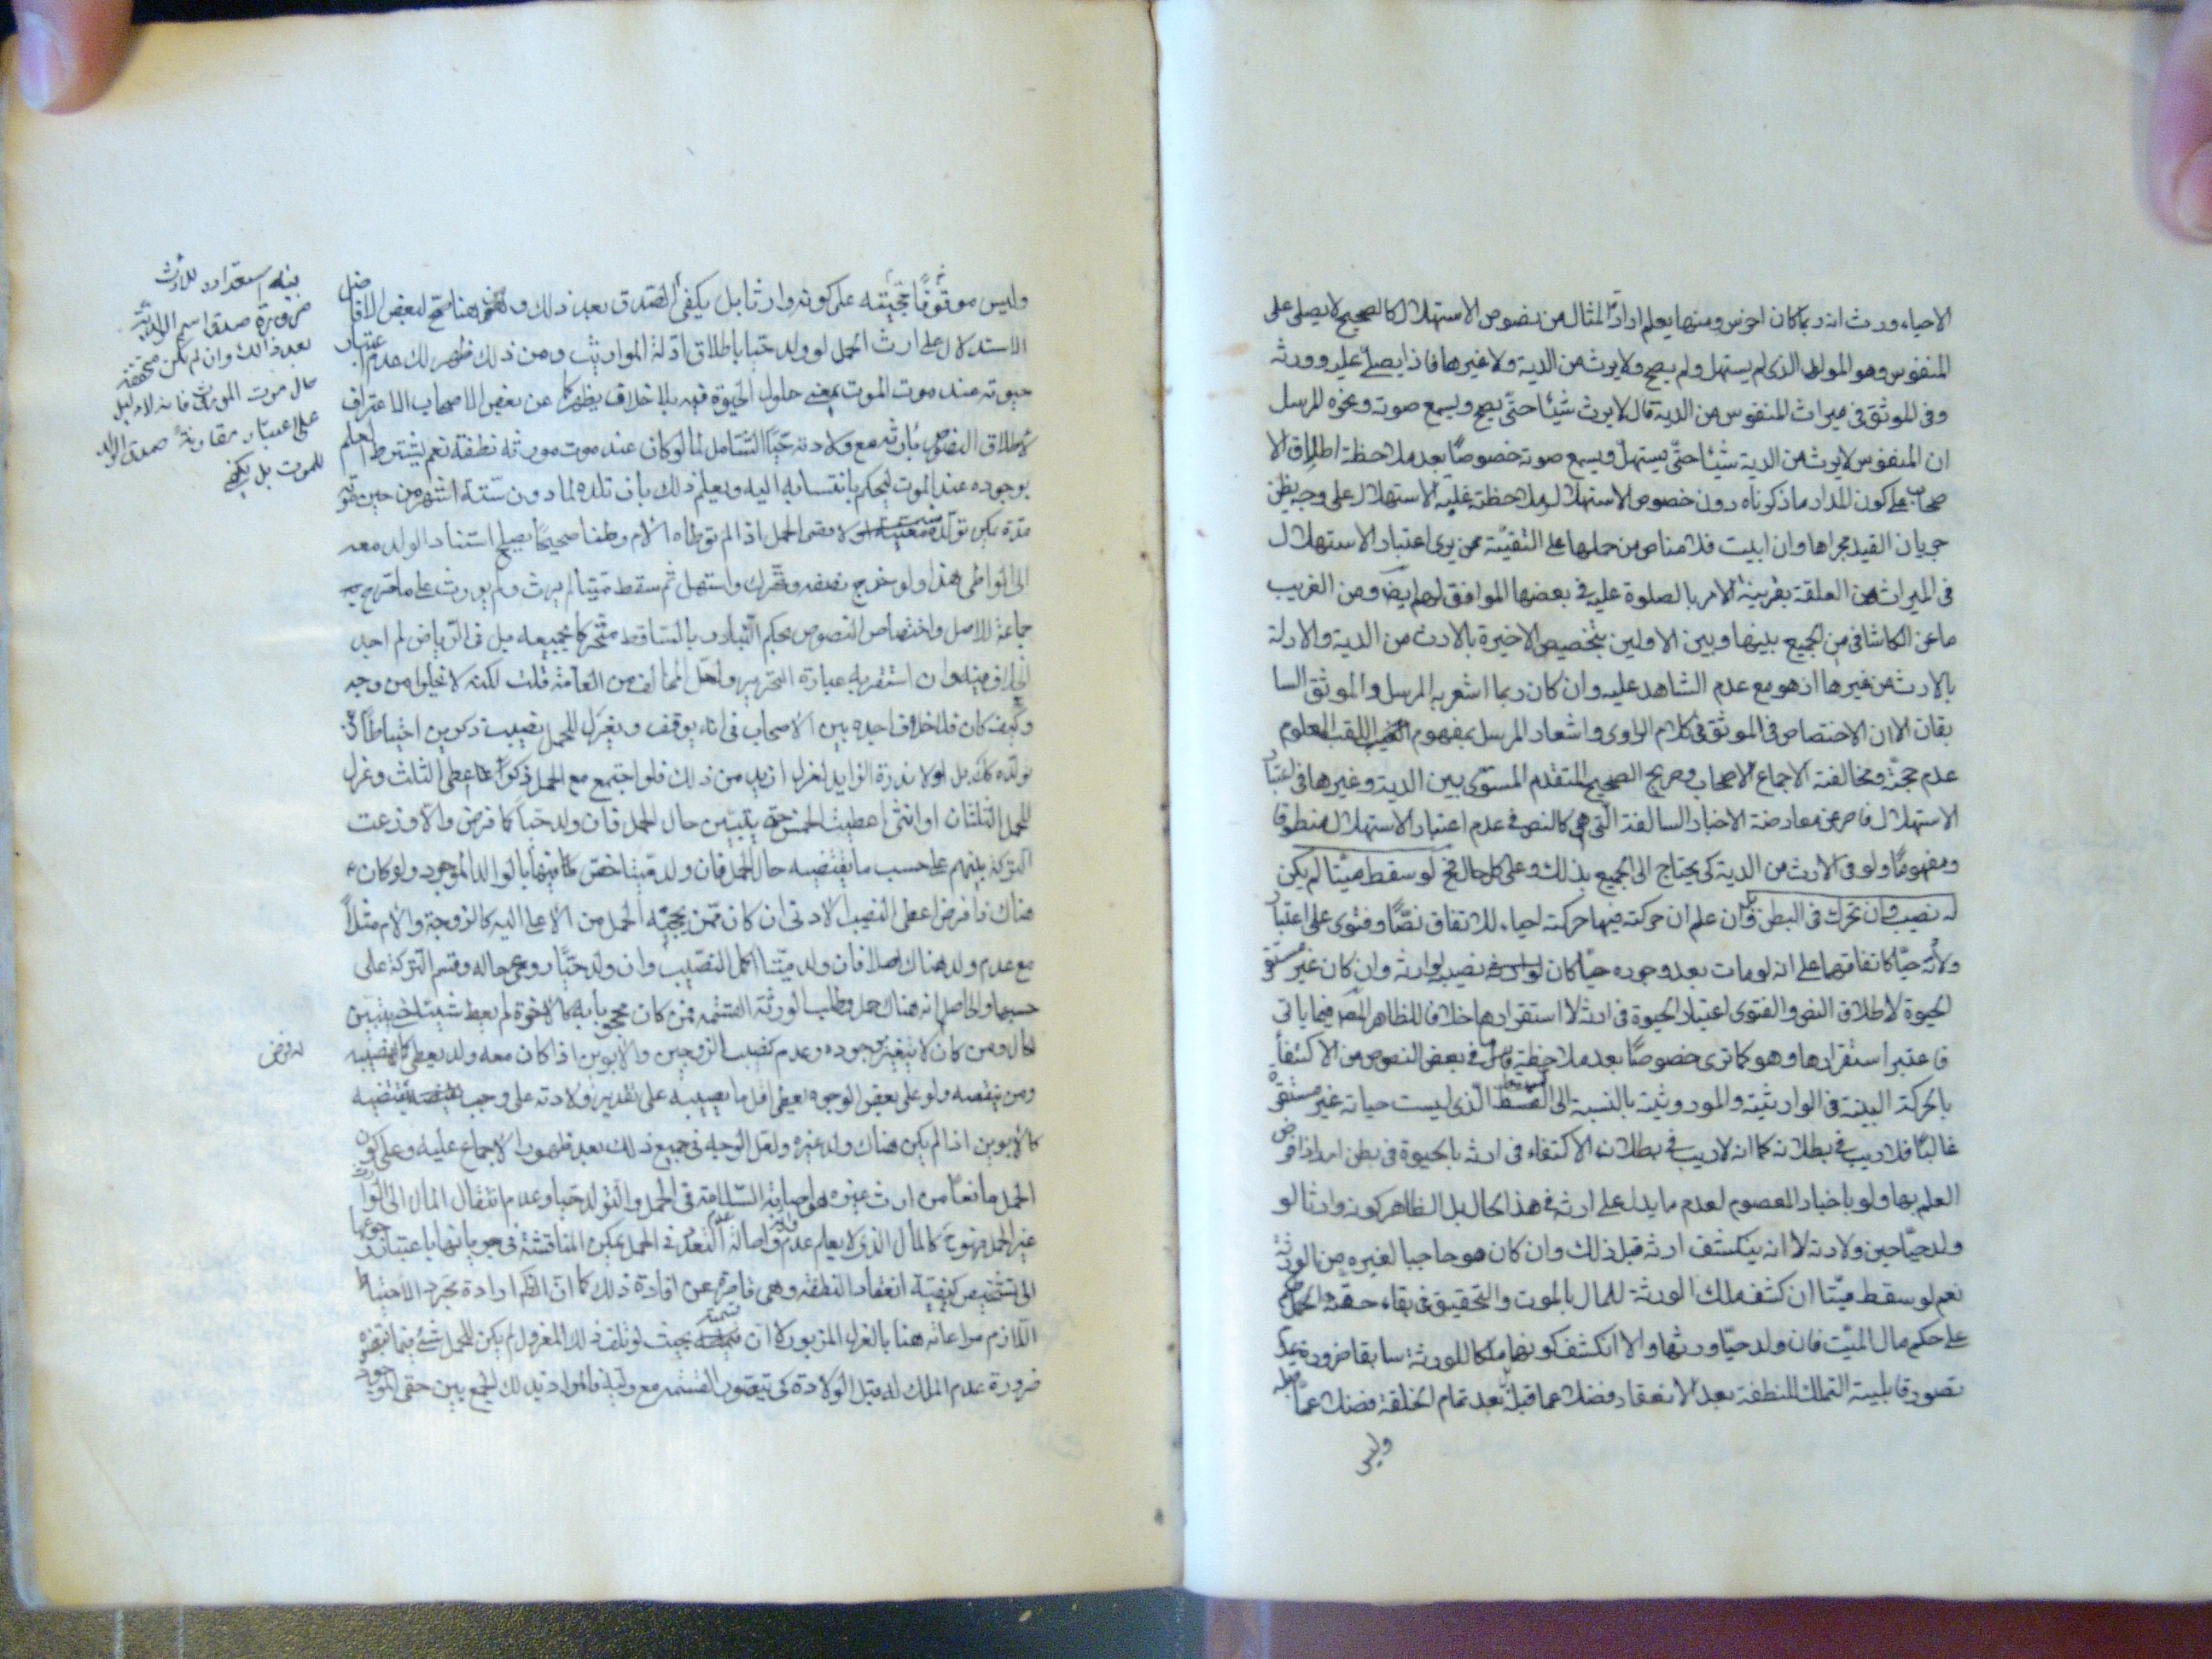 الاحياء ورث انه ربما كان اخرس ومنها يعلم ارادة المثال من نصوص الاستهلال كالصحيح لا يصلى على
المنفوس وهو المولود الذى لم يستهل ولم يصح ولا يرث من الدية ولا غيرها فاذا يصلى عليه وورثه
وفى الموثق فى ميراث المنفوس من الدية قال لا يرث شيئا حتى يصيح ويسمع صوته ونحوه المرسل
ان المنفوس لا يرث من الدية شيئا حتى يستهل ويسمع صوته خصوصا بعد ملاحظة اطلاق الا
صحاب على كون المدار ما ذكرناه دون خصوص الاستهلال بملاحظة غلبة الاستهلال على وجه يظن
جريان القيد مجراها وان ابيت فلا مناص من حملها على التقية ممن يرى اعتبار الاستهلال
فى الميراث من العلقة بقرينة الامر بالصلوة عليه فى بعضها الموافق لهم ايض ومن الغريب
ما عن الكاشانى من الجميع بينها وبين الاولين بتخصيص الاخيرة بالارث من الدية والادلة
بالارث من غيرها اذ هو مع عدم الشاهد عليه وان كان ربما اشعر به المرسل والموثق السا
بقان الا ان الاختصاص فى الموثق فى كلام الراوى واشعار المرسل بمفهوم اللقب المعلوم
عدم حجيته ومخالفته الاجماع الاصحاب وصريح الصحيح المتقدم المستوى بين الدية وغيرها فى اعتبار
الاستهلال قاصر عن معارضة الاخبار السالفة التى هى كالنص فى عدم اعتبار الاستهلال منطوقا
ومفهوما ولو فى الارث من الدية كى يحتاج الى الجميع بذلك وعلى كل حال فح لو سقط ميتا لم يكن
له نصيب وان تحرك فى البطن بل وان علم ان حركته فيها حركته احياء للاتفاق نصا وفتوى على اعتبار
ولادته حيا كاتفاقهما على انه لو مات بعد وجوده حيا كان نصيبه لوارثه وان كان غير مستقر
الحيوة لاطلاق النص والفتوى اعتبار الحيوة فى ارثه لا استقرارها خلافا للظاهر المص فيما ياتى
فاعتبر استقرارها وهو كما ترى خصوصا بعد ملاحظة ما فى بعض النصوص من الاكتفاء
بالحركة البينة فى الوارثية والموروثية بالنسبة الى السقط الذى ليست حياته غير مستقرة
غالبا فلا ريب فى بطلانه كما انه لا ريب فى بطلان الاكتفاء فى ارثه بالحيوة فى بطن امه اذا فرض
العلم بها ولو باخبار المعصوم لعدم ما يدل على ارثه فى هذا الحال بل الظاهر كونه وارثا لو
ولد حيا حين ولادته لا انه ينكشف ارثه قبل ذلك وان كان هو حاجبا لغيره من الورثة
نعم لو سقط ميتا انكشف ملك الورثة للمال بالموت والتحقيق فى بقاء حصة الحمل
على حكم مال الميت فان ولد حيا ورثها والا انكشف كونها ملكا للورثة سابقا ضرورة عدم
تصور قابلية التملك للنطفة بعد الانعقاد فضلا عما قبله بعد تمام الخلقة فضلا عما قبله
وليس
وليس موثوقا بحجيته على كونه وارثا بل يكفى الصدق بعد ذلك ومن هنا صح لبعض الافاضل
الاستدلال على ارث الحمل لو ولد حيا باطلاق ادلة المواريث ومن ذلك ظهر لك عدم اعتبار
حيوته عند موت المورث بمعنى حلول الحيوة فيه بلا خلاف يظهر كما عن بعض الاصحاب الاعتراف
لاطلاق النصوص بارثه مع ولادته حيا الشامل لما لو كان عند موت مورثه نطفة نعم يشترط العلم
بوجوده عند الموت ليحكم بانتسابه اليه ويعلم ذلك بان تلده لما دون ستة اشهر من حين موته
مدة يمكن تولده منه ولاقصى الحمل اذا لم توطأ الام وطئا صحيحا يصلح استناد الولد معه
الى الواطى هذا ولو خرج نصفه وتحرك واستهل ثم سقط ميتا لم يرث ولم يورث على ما صرح به
جماعة للاصل واختصاص النصوص بحكم التبادر بالساقط متحركا بجميعه بل فى الرياض لم اجد
الخلاف فيه وان استغربه عبارة التحرير ولعل المخالف من العامة قلت لكنه لا يخلوا من وجه
وكيف كان فلا خلاف اجده بين الاصحاب فى انه يوقف ويعزل للحمل نصيب ذكرين احتياطا عن
تولده كك بل لولا ندرة الزايد لعزل ازيد من ذلك فلو اجتمع مع الحمل ذكرا اعطى الثلث وعزل
للحمل الثلثان او انثى اعطيت الخمس حتى يتبين حال الحمل فان ولد حيا كما فرض والا وزعت
التركة بينهم على حسب ما يقتضيه حال الحمل فان ولد ميتا خص باقيها بالولد الموجود ولو كان
هناك ذا فرض اعطى النصيب الادنى ان كان ممن يحجبه الحمل من الاعلى اليه كالزوجة والام مثلا
مع عدم ولد هناك اصلا فان ولد ميتا اكمل النصيب وان ولد حيا روعى حاله وقسم التركة على
حسبها والحاصل انه هناك حمل وطلب الورثة القسمة فمن كان محجوبا به كالاخوة لم يعط شيئا حتى يتبين
الحال ومن كان له فرض لا يتغير بوجوده وعدمه كنصيب الزوجين والابوين اذا كان معه ولد يعطى كمال نصيبه
ومن ينقصه ولو على بعض الوجوه يعطى اقل ما يصيبه على تقدير ولادته على وجه يقتضيه
كالابوين اذا لم يكن هناك ولد غيره ولعل الوجه فى جميع ذلك بعد ظهور الاجماع عليه وعلى كون
الحمل مانعا من ارث غيره هو اصابة السلامة فى الحمل والتولد حيا وعدم انتقال المال الى الوارث
غير الحمل كالمال الذى لا يعلم عدم واصالة عدم التعدد فى الحمل يمكن المناقشة فى جريانها باعتبار رجوعها
الى تشخيص كيفية انعقاد النطفة وهى قاصرة عن افادة ذلك كما ان الظ ارادة مجرد الاحتياط
اللازم مراعاته هنا بالعزل المزبور لا ان قسمته بحيث لو تلف ذلك المعزول لم يكن للحمل شئ فيما اقتضته
ضرورة عدم الملك له قبل الولادة كى يتصور القسمة مع وليه فالمراد بذلك الجمع بين حقى الموجود
فيه استعداد للارث
ضرورة صدق اسم الولد
بعد ذلك وان لم يكن متحققة
حال موت المورث فانه لا دليل
على اعتبار مقارنة صدق الولد
للموت بل يكفى
له فرض